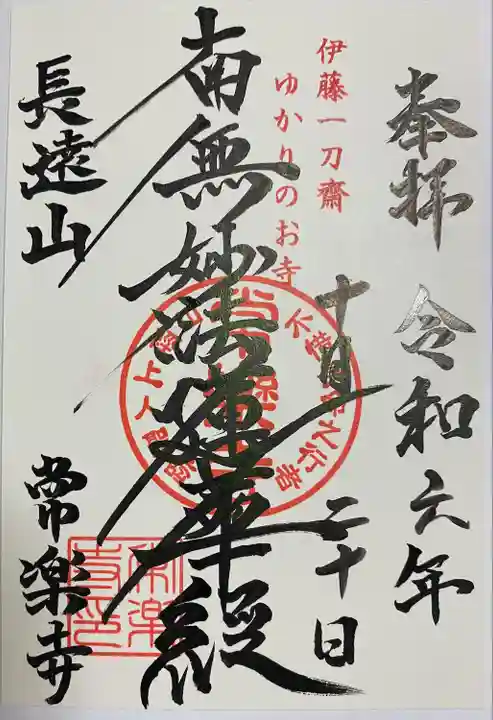 奉拝 令和六年
十月二十日
伊藤一刀齋
ゆかりのお寺
南無妙法蓮華経
長遠山
常楽寺
常楽
寺印